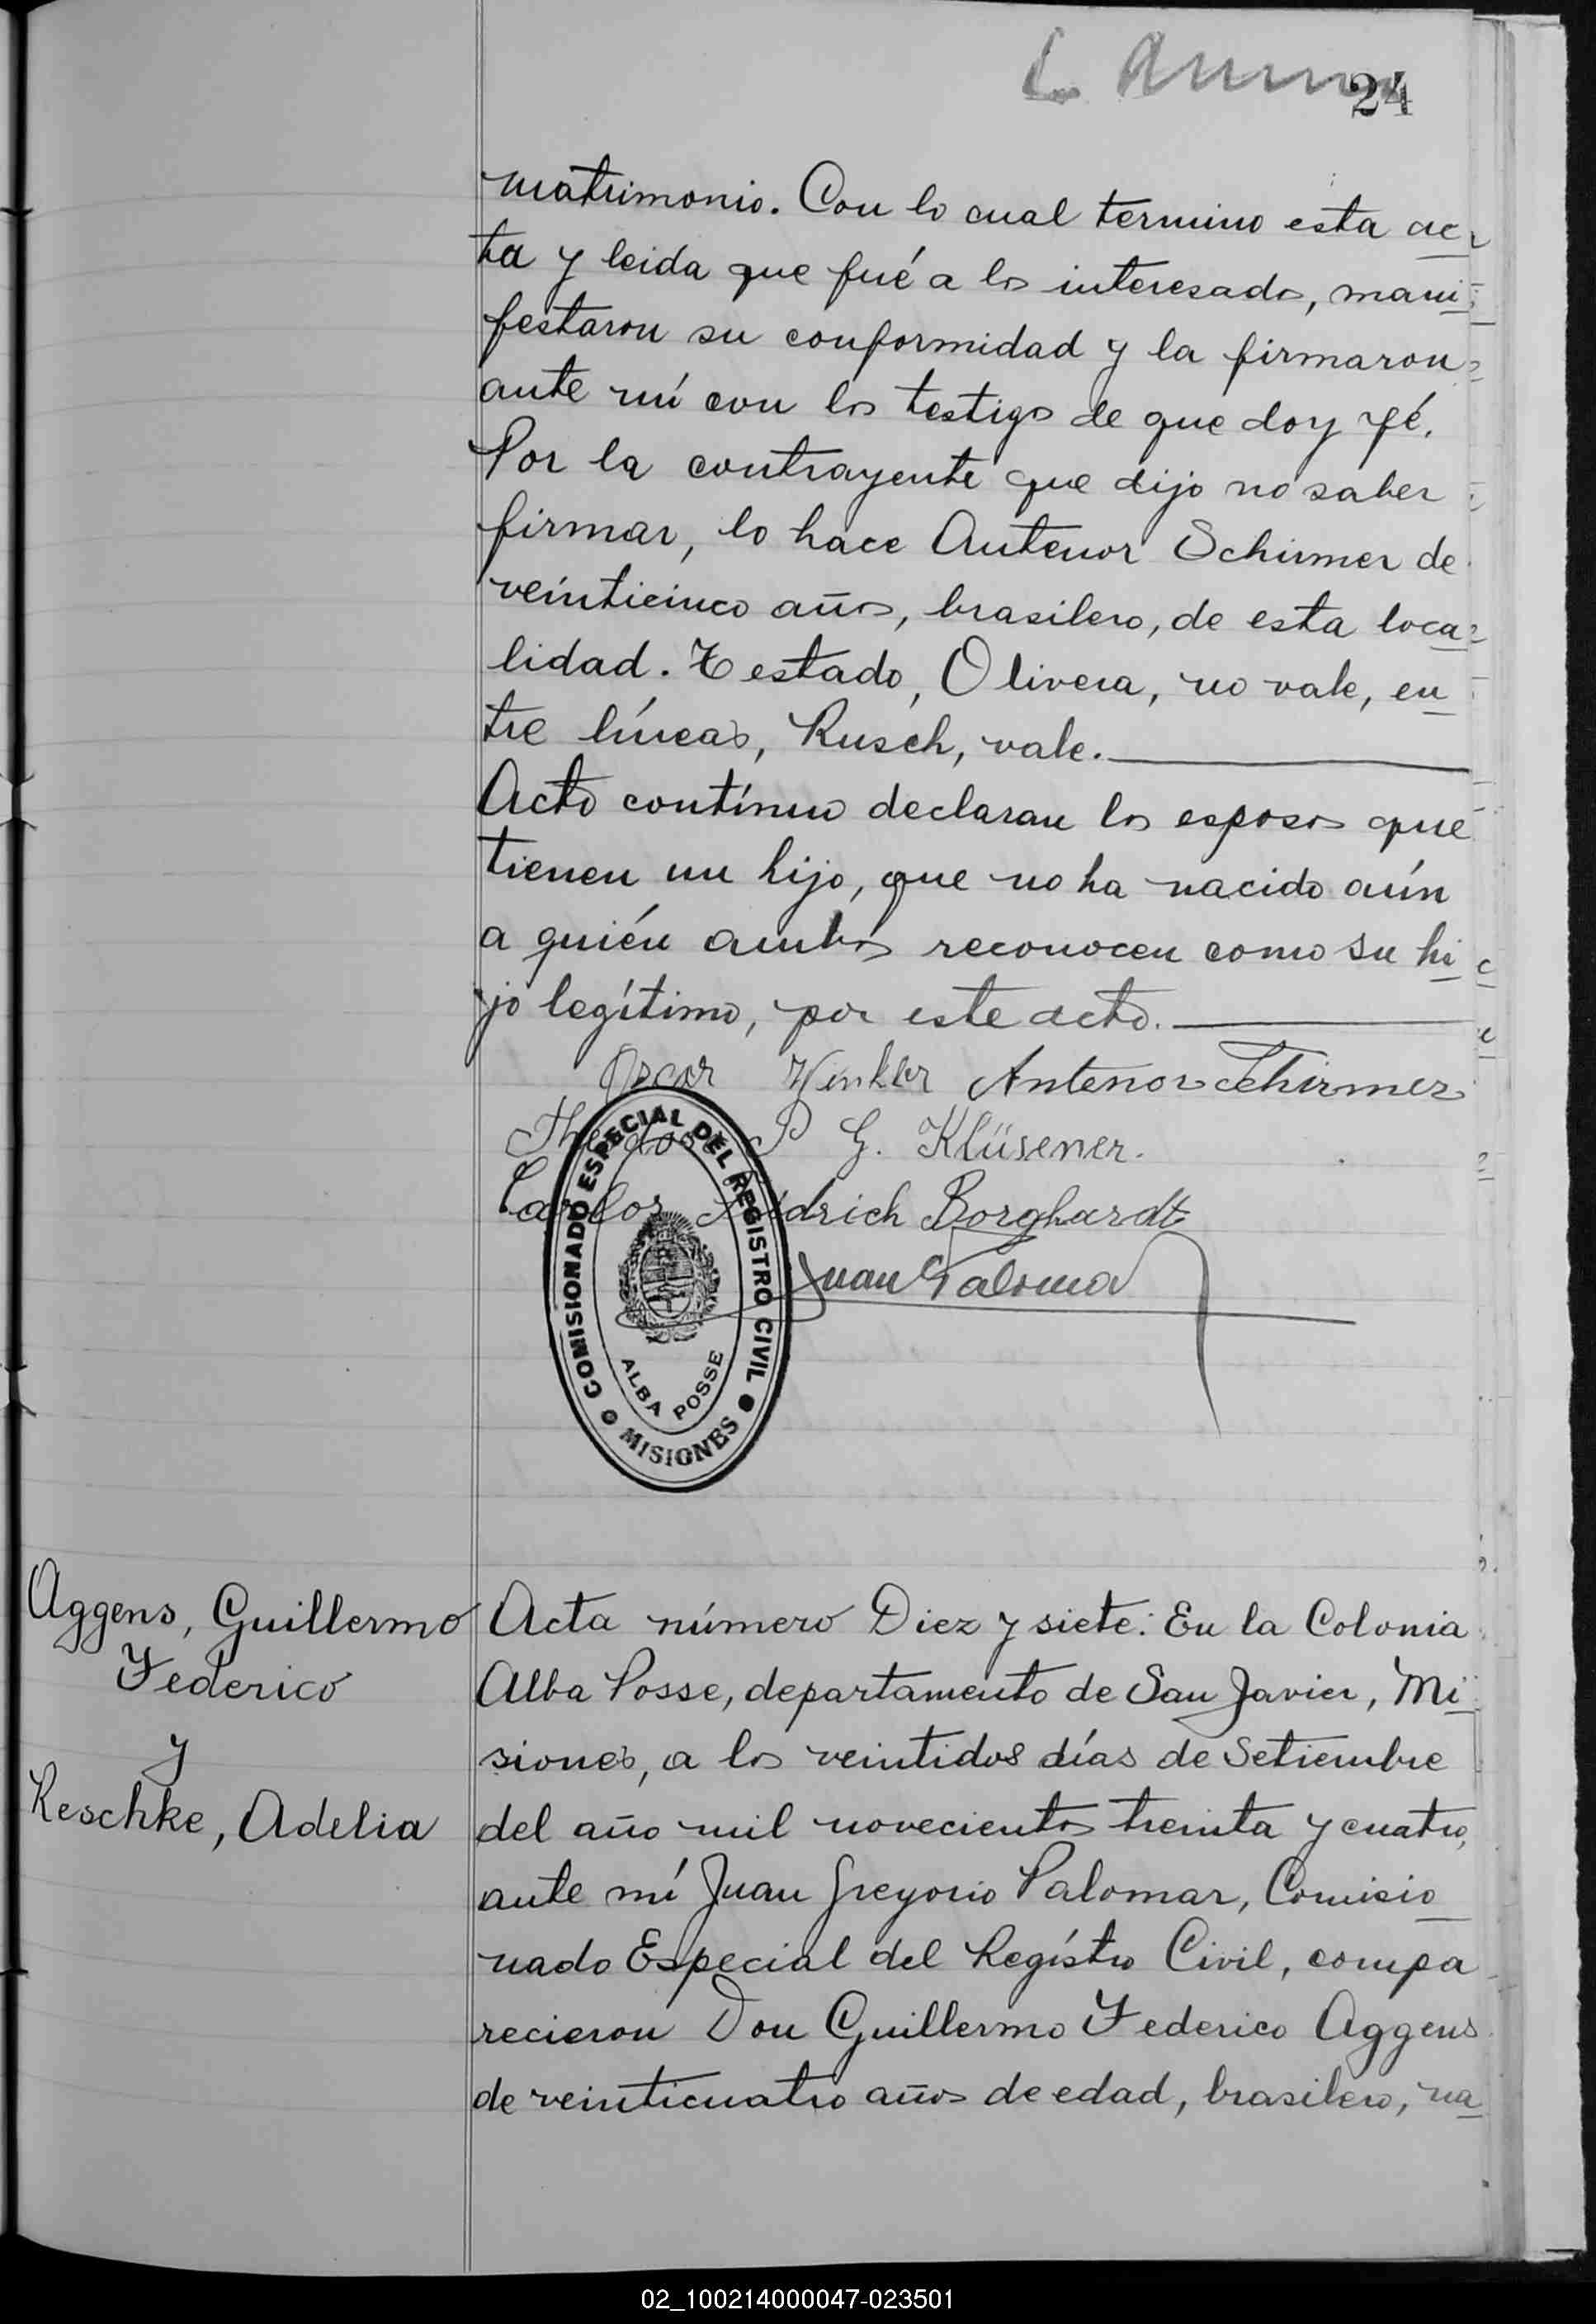 24
matrimonio. Con lo cual termino esta ac
ta y leida que fué a los interesados, mani
festaron su conformidad y la firmaron
ante mí con los testigos de que doy fé.
Por la contrayente que dijo no saber
firmar, lo hace Antenor Schirmer de
veinticinco años, brasilero, de esta loca
lidad. Testado, Olivera, no vale, en
tre líneas, Rusch, vale.
Acto contínuo declaran los esposos que
tienen un hijo, que no ha nacido aún
a quién ambos reconocen como su hi
jo legítimo, por este acto.
Oscar Winkler Antenor Schirmer
P G. Klüsener.
Carlos Borghardt
Juan G Palomar
COMISIONADO ESPECIAL DEL REGISTRO CIVIL
ALBA POSSE
MISIONES
Aggens, Guillermo
Federico
y
Reschke, Adelia
Acta número Diez y siete: En la Colonia
Alba Posse, departamento de San Javier, Mi
siones, a los veintidos días de Setiembre
del año mil novecientos treinta y cuatro,
ante mí Juan Gregorio Palomar, Comisio
nado Especial del Regístro Civil, compa
recieron Don Guillermo Federico Aggens
de veinticuatro años de edad, brasilero, na
02_100214000047-023501